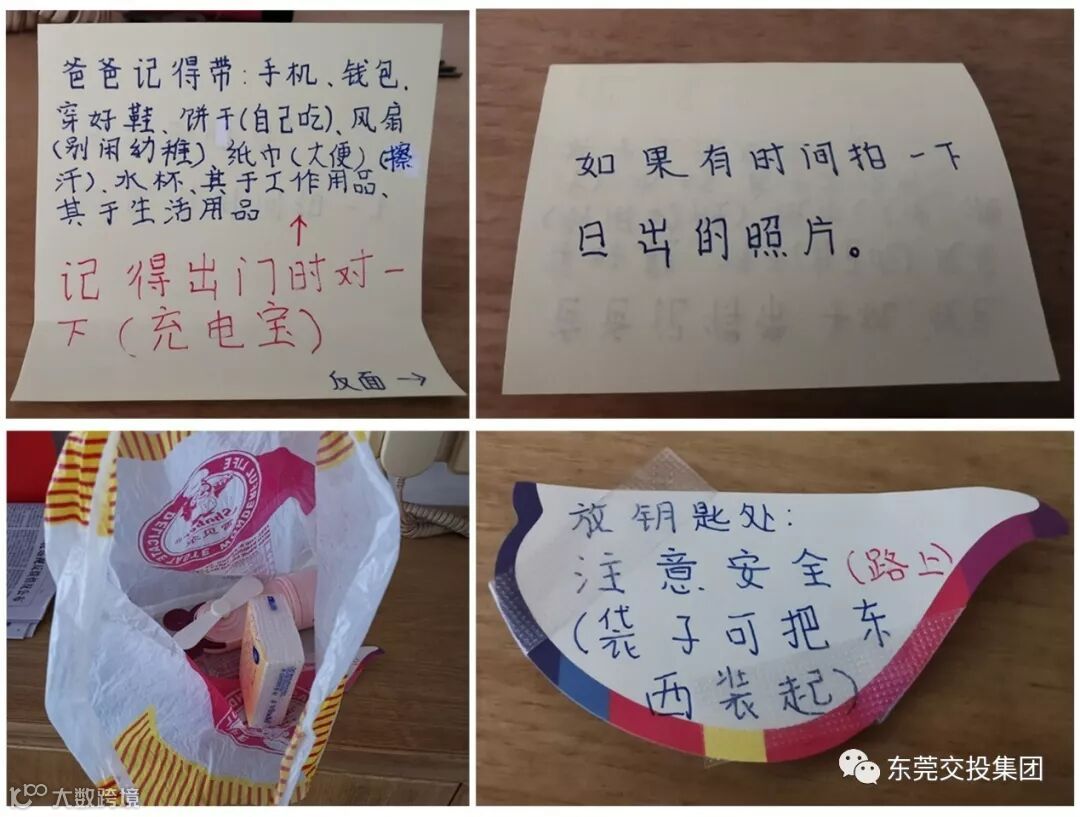 爸爸记得带:手机、钱包,
穿好鞋、饼干(自己吃)、风扇
(别闲幼稚)、纸巾(大便)(擦
汗)、水杯、其于工作用品、
其于生活用品
记得出门时对一
下(充电宝)
反面→
如果有时间拍一下
日出的照片。
DELICACY
放钥匙处:
注意安全(路上)
(袋子可把东
西装起)
东莞交投集团
大数跨境